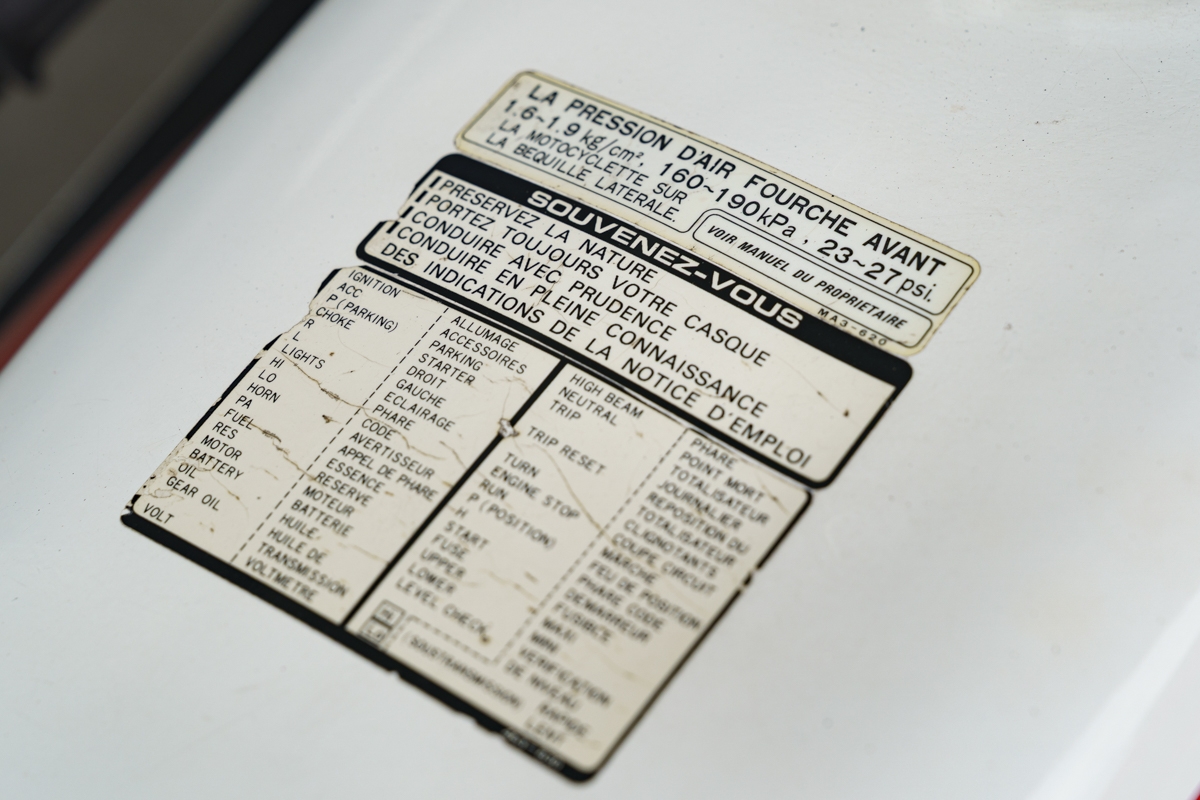 LA PRESSION D'AIR FOURCHE AVANT
1.6~1.9 kg/cm², 160~190 kPa, 23~27 psi.
LA MOTOCYCLETTE SUR
LA BEQUILLE LATERALE.
VOIR MANUEL DU PROPRIETAIRE
MA3-620
SOUVENEZ-VOUS
PRESERVEZ LA NATURE
PORTEZ TOUJOURS VOTRE CASQUE
CONDUIRE AVEC PRUDENCE
CONDUIRE EN PLEINE CONNAISSANCE
DES INDICATIONS DE LA NOTICE D'EMPLOI
IGNITION
ACC
P (PARKING)
CHOKE
R
L
LIGHTS
HI
LO
HORN
PA
FUEL
RES
MOTOR
BATTERY
OIL
GEAR OIL
VOLT
ALLUMAGE
ACCESSOIRES
PARKING
STARTER
DROIT
GAUCHE
ECLAIRAGE
PHARE
CODE
AVERTISSEUR
APPEL DE PHARE
ESSENCE
RESERVE
MOTEUR
BATTERIE
HUILE
HUILE DE
TRANSMISSION
VOLTMETRE
HIGH BEAM
NEUTRAL
TRIP
TRIP RESET
TURN
ENGINE STOP
RUN
P (POSITION)
H
START
FUSE
UPPER
LOWER
LEVEL CHECK
PHARE
POINT MORT
TOTALISATEUR
JOURNALIER
REPOSITION DU
TOTALISATEUR
CLIGNOTANTS
COUPE CIRCUIT
MARCHE
FEU DE POSITION
PHARE CODE
DEMARREUR
FUSIBLE
MAXI
MINI
VERIFICATION
DE NIVEAU